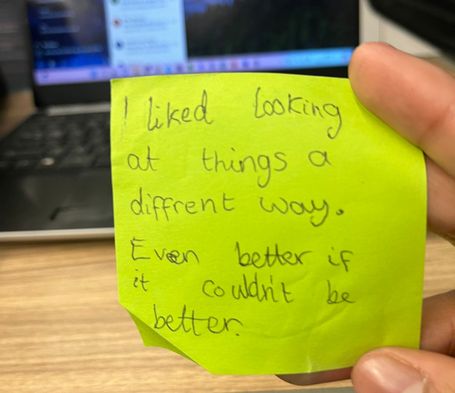 I liked looking
at things a
diffrent way.
Even better if
it couldn't be
better.